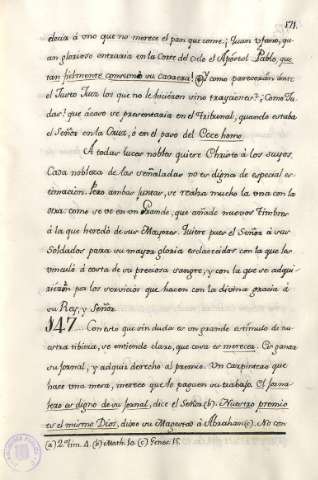 171.
á uno que no merece el pan que come. ¡Quan ufano, qu-
an glorioso entraria en la Corte del cielo el Apóstol Pablo, que
tan fielmente consumó su carrera! Y como parecerán ante
el Justo Juez los que no le hicieron sino trayciones? ¿Como Ju-
das? que se presentaria en el Tribunal, quando estaba
el Señor en la Cruz, ó en el paso del Ecce homo.
A todas luces nobles quiere Christo á los suyos.
Cada nobleza de las señaladas no es digna de especial es-
timacion. Pero ambas juntas, se realza mucho la una con la
otra como se ve en un Grande, que añade nuevos Timbres
á la que heredó de sus Mayores. Quiere pues el Señor á sus
Soldados para su mayor gloria esclarecidos con la que les
vinculó á costa de su preciosa sangre, y con la que se adqui-
rieron por los servicios que hacen con la divina gracia á
su Rey, y Señor.
§47. Con esto que sin duda es un grande estimulo de nu-
estra tibieza, se entiende claro, que cosa es merecer. Es ganar
su jornal, y adquirir derecho al premio. Un carpintero que
hace una mesa, merece que le paguen su trabajo. El jorna-
lero es digno de su jornal, dice el Señor (b). Nuestro premio
es el mismo Dios, dixo su Magestad á Abraham (c). No con
(a) 2. Tim. 4. (b) Math. 10. (c) Genes. 15.